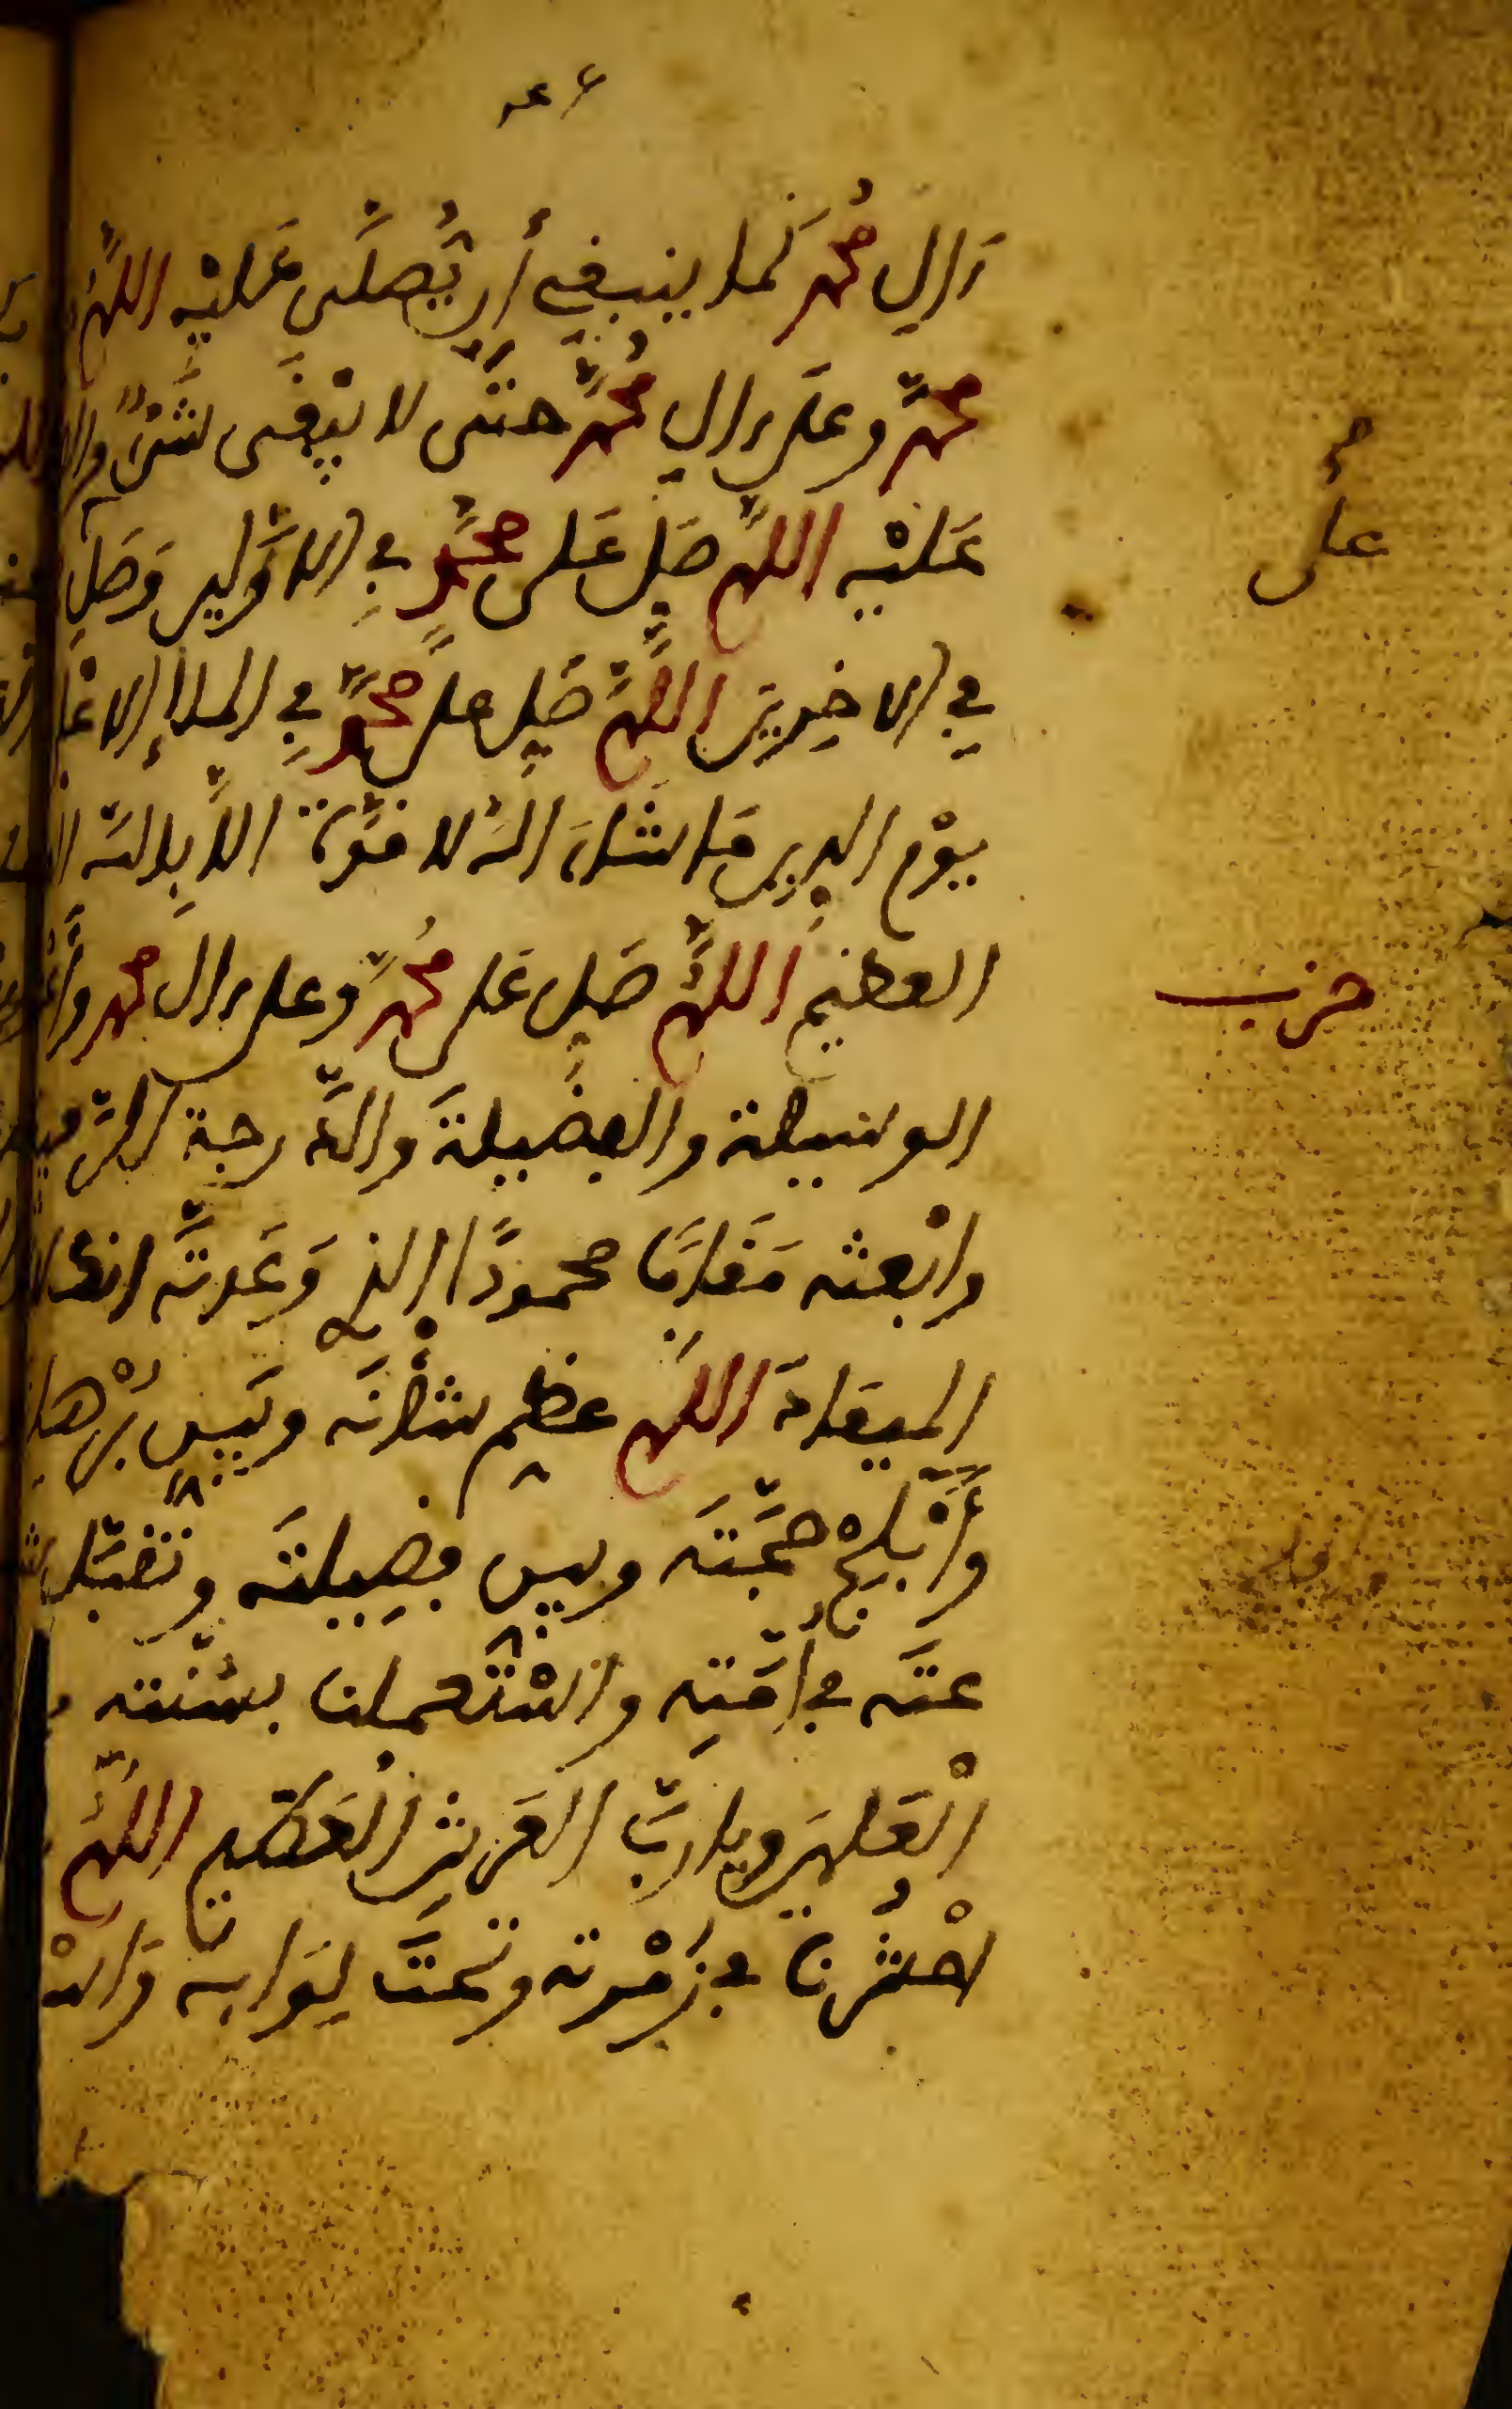 ءالِ مُحمد كَما ينبغي أن يُصلَّى عَليْه اللهمَّ
محمد وعلى ءال مُحمد حتَّى لا يبْقَى شَيْءٌ
عَليْه اللهم صَلِ عَلى محمدٍ في الاوَّلين وَصَلِ
في الاخِرِينَ اللهمَّ صَلِ على محمدٍ في الملإ الاعْلى
يوْم الدين مَا شاءَ الله لا قوَّة الَّا بِالله
العظيم اللهمَّ صَلِ عَلى مُحمد وعلى ءال محمد
الوسيلة والفَضيلةَ والدَّرجة
وابْعثه مَقامًا محمودًا الذي وَعَدتَّه انك لا
الميعادَ اللهم عظم شأْنَه وبَيِّن بُرْهانه
وَأَبْلِجْ حجَّتَه وبين فضِيلتَه وتقبَّل
عتَه في أمَّتِه واسْتَعملنا بسُنته
الْعَالمين ويا ربَّ العَرْشِ العَظيم اللهمَّ
احْشُرنا في زُمْرته وتحتَ لِوَايه
على
حزب